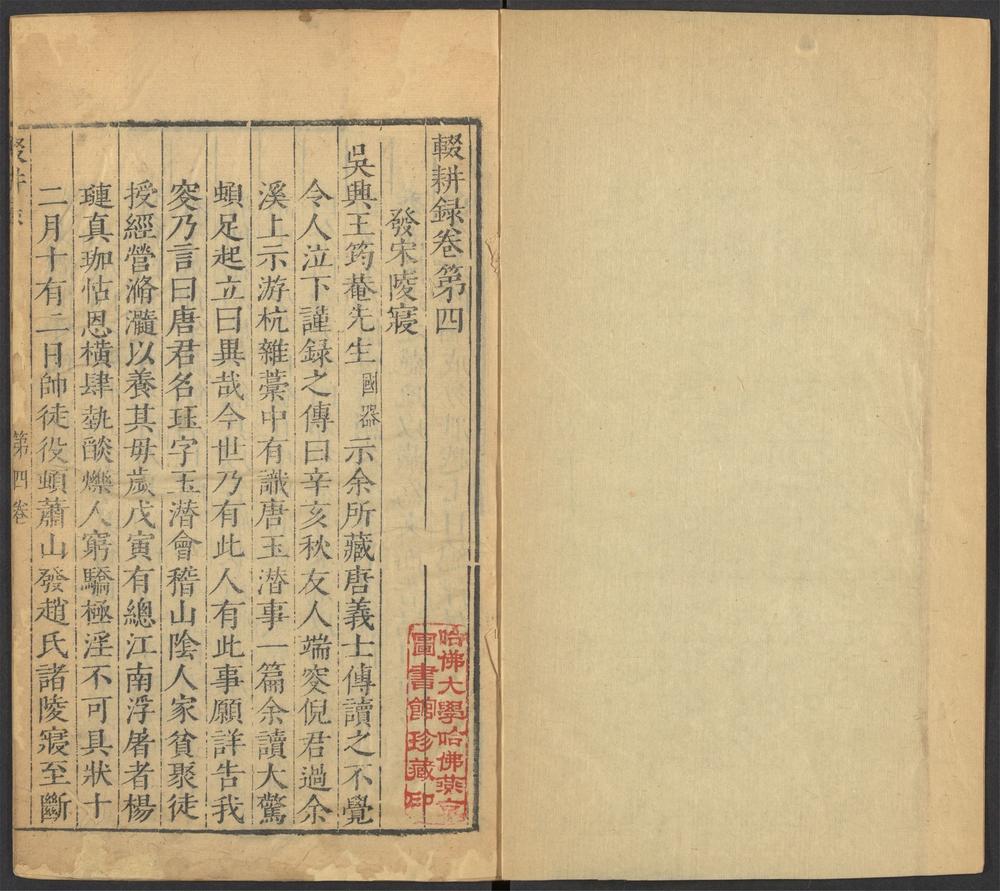 輟耕録卷第四
發宋陵寢
吳興王筠菴先生國器示余所藏唐義士傳讀之不覺
令人泣下謹録之傳曰辛亥秋友人端夋倪君過余
溪上示游杭雜藁中有識唐玉潜事一篇余讀大驚
頓足起立曰異哉今世乃有此人有此事願詳告我
夋乃言曰唐君名珏字玉潜會稽山陰人家貧聚徒
授經營滫瀡以養其毋歲戊寅有總江南浮屠者楊
璉真珈怙恩横肆埶燄爍人窮驕極淫不可具狀十
二月十有二日帥徒役頓蕭山發趙氏諸陵寢至斷
第四卷
哈佛大學哈佛燕京
圖書館珍藏印